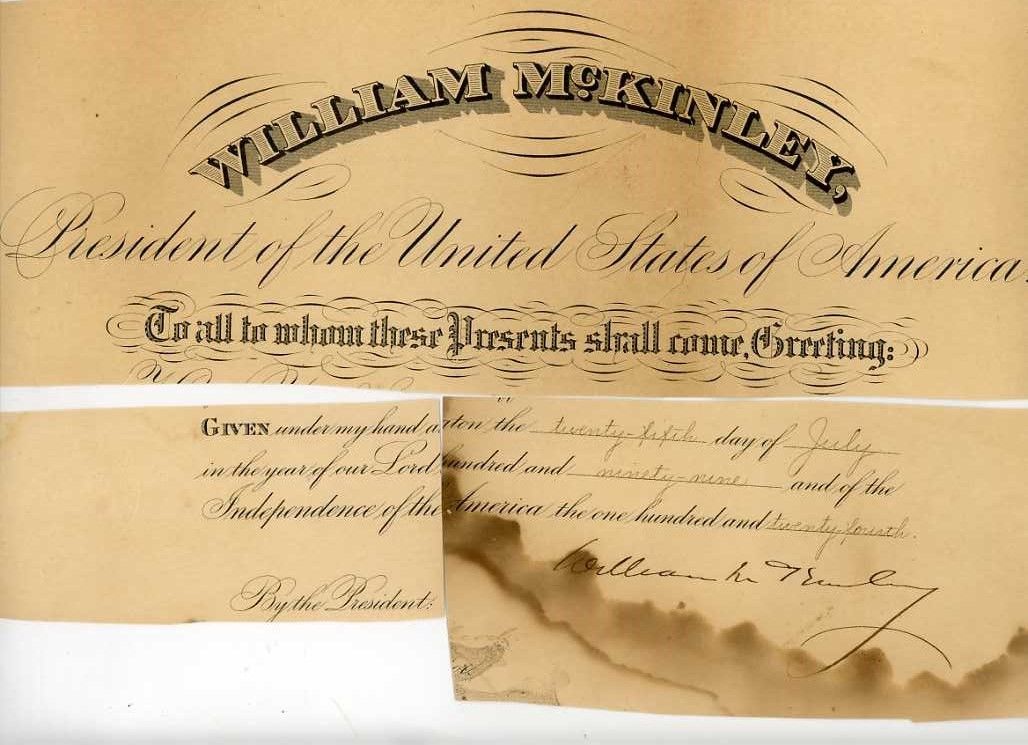 WILLIAM McKINLEY,
President of the United States of America.
To all to whom these Presents shall come, Greeting:
GIVEN under my hand a
in the year of our Lord
Independence of the
By the President:
gton the twenty fifth day of July
hundred and ninety-nine and of the
America the one hundred and twenty fourth.
William McKinley